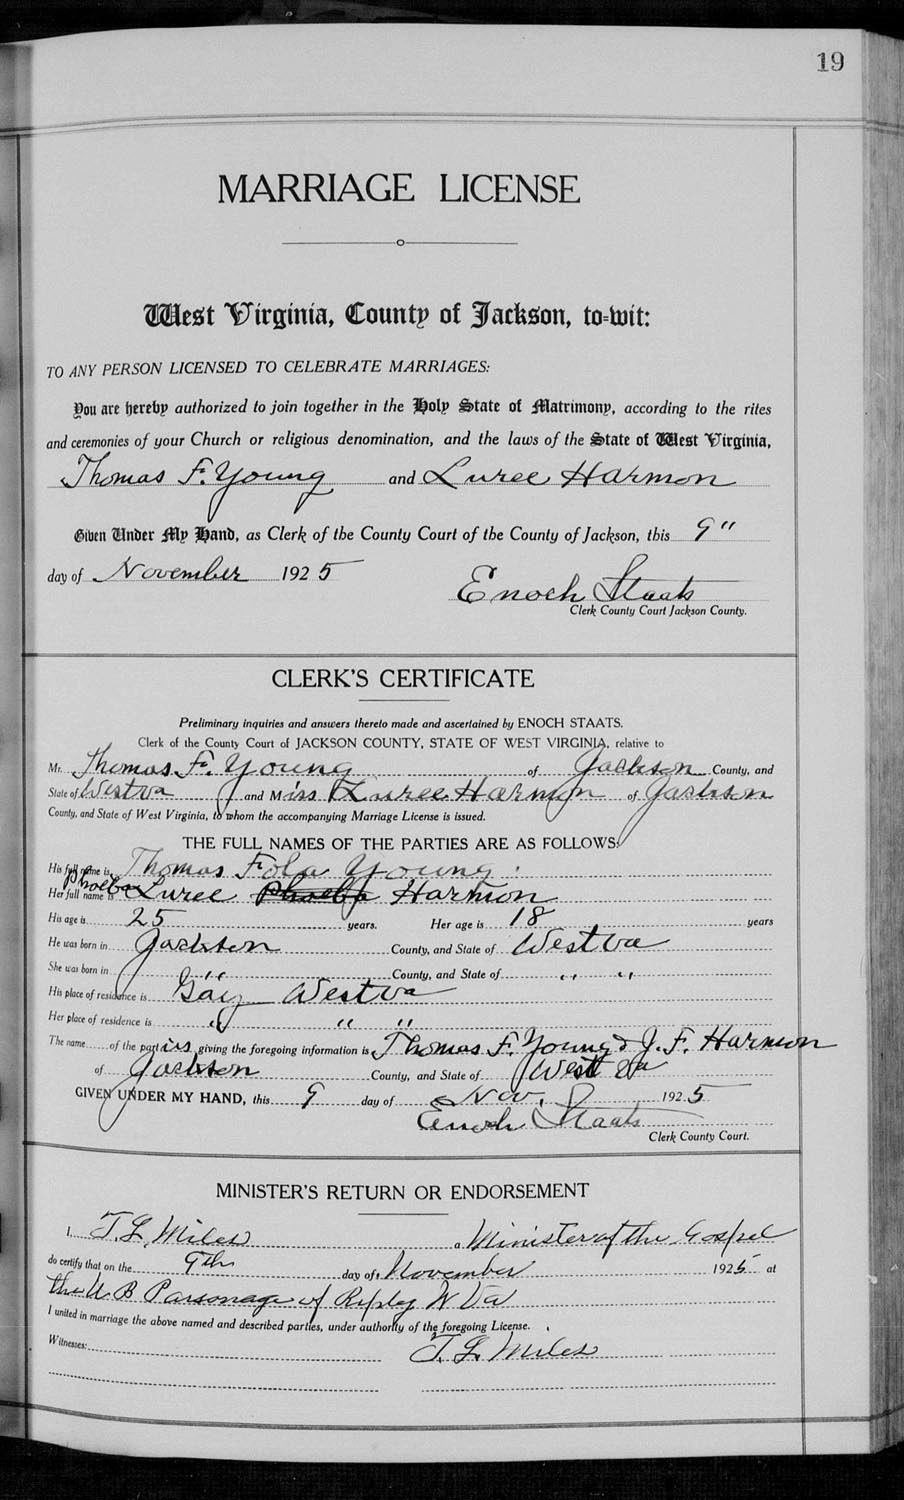 19
MARRIAGE LICENSE
West Virginia, County of Jackson, to=wit:
TO ANY PERSON LICENSED TO CELEBRATE MARRIAGES:
You are hereby authorized to join together in the Holy State of Matrimony, according to the rites
and ceremonies of your Church or religious denomination, and the laws of the State of West Virginia,
Thomas F. Young and Luree Harmon
Given Under My Hand, as Clerk of the County Court of the County of Jackson, this 9"
day of November 1925
Enoch Staats
Clerk County Court Jackson County.
CLERK'S CERTIFICATE
Preliminary inquiries and answers thereto made and ascertained by ENOCH STAATS.
Clerk of the County Court of JACKSON COUNTY, STATE OF WEST VIRGINIA, relative to
Mr. Thomas F. Young of Jackson County, and
State of West va and Miss Luree Harmon of Jackson
County, and State of West Virginia, to whom the accompanying Marriage License is issued.
THE FULL NAMES OF THE PARTIES ARE AS FOLLOWS:
His full name is Thomas Fola Young
Her full name is Phoeba Luree Phoeba Harmon
His age is 25 years. Her age is 18 years
He was born in Jackson County, and State of West va
She was born in " County, and State of " "
His place of residence is Gay West va
Her place of residence is " " "
The name of the parties giving the foregoing information is Thomas F. Young & J. F. Harmon
of Jackson County, and State of West Va
GIVEN UNDER MY HAND, this 9 day of Nov. 1925
Enoch Staats
Clerk County Court.
MINISTER'S RETURN OR ENDORSEMENT
I, T. L. Miles, a Minister of the Gospel
do certify that on the 9th day of November 1925 at
the U B Parsonage of Ripley W Va
I united in marriage the above named and described parties, under authority of the foregoing License.
Witnesses: T. L. Miles